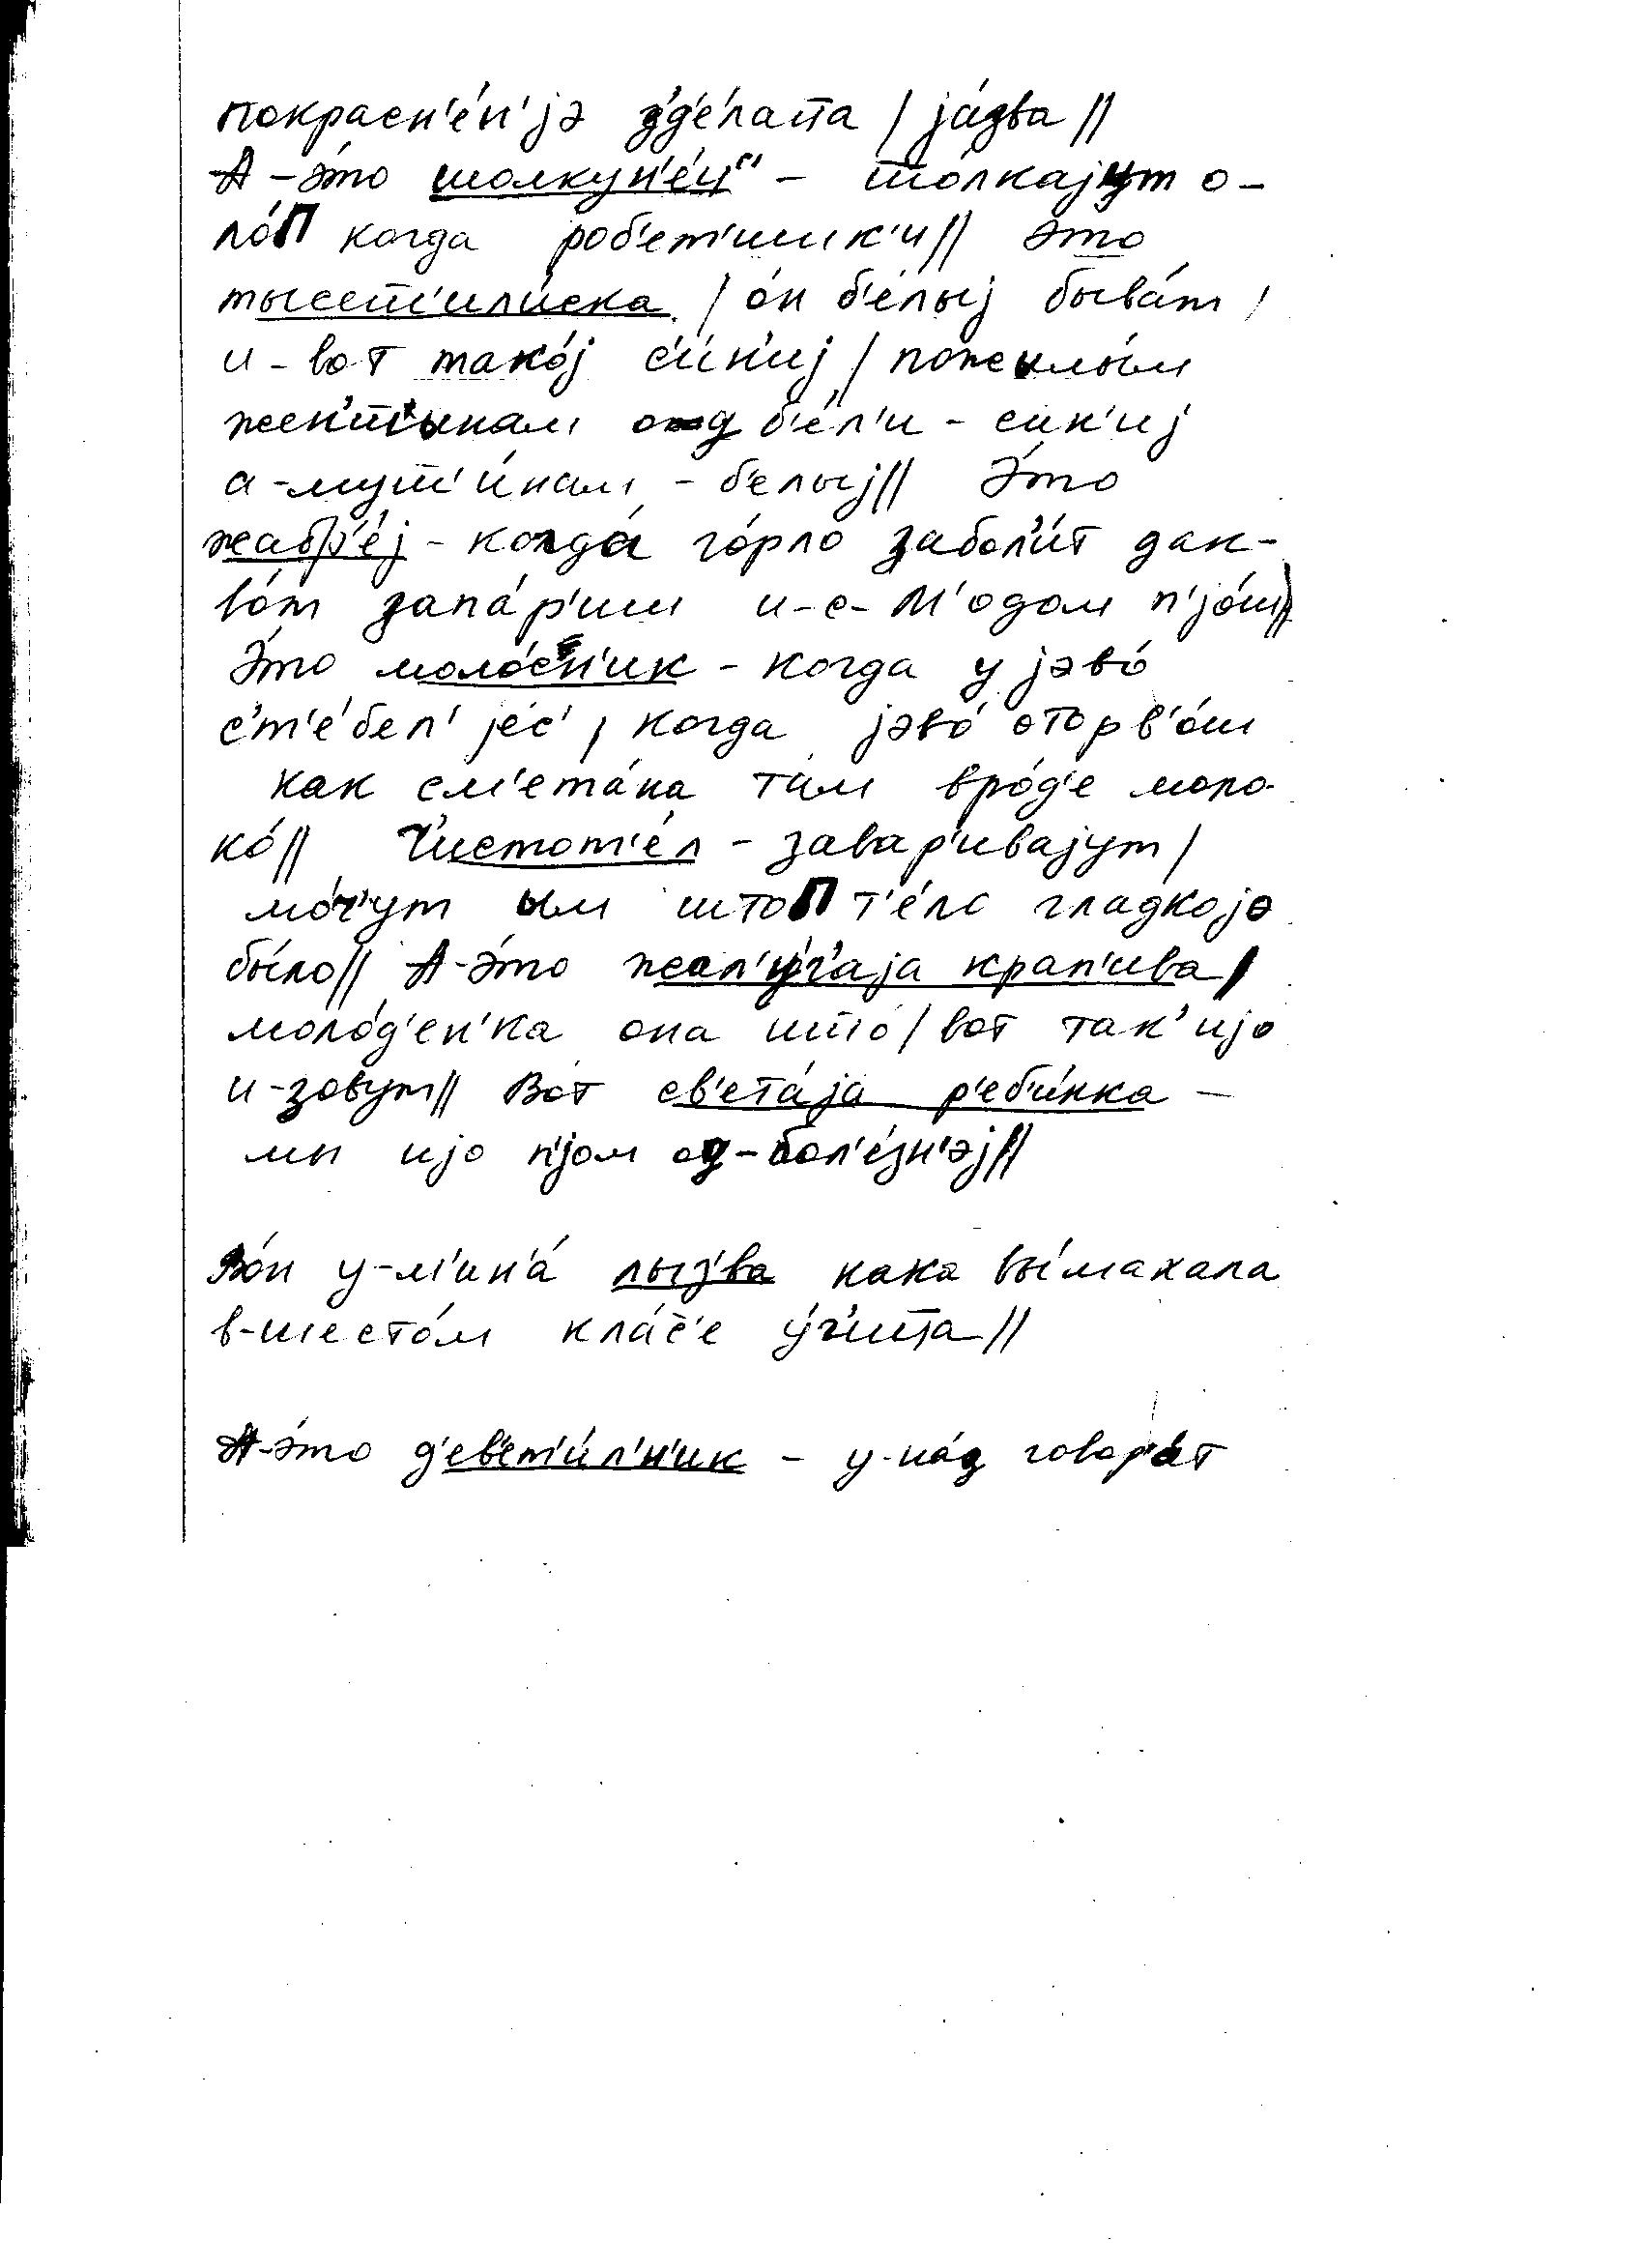 покрасн'е́н'јэ з'д'е́лата / ја́два //
А-э́то толкун'е́ц" - то́лкајут о-
ло́п когда роб'ет'ишк'и // э́то
тысет'или́ска / о́н б'е́лыј быва́т /
и-вот тако́ј с'и́н'иј / пожылы́м
жен'т'ынам од б'е́л'и - син'иј
а-мут'и́нам - б'елыј // Э́то
жабр'е́ј - когда́ го́рло забол'и́т дак-
во́т запа́р'иш и-с-м'одом п'јо́ш //
Э́то моло́сн'ик - когда у јэво́
с'т'е́бел' је́с' / когда јэво́ оторв'о́ш
как см'ета́на та́м вро́д'е моло-
ко́ // Ч'истот'е́л - завар'ивајут /
мо́ч'ут ым штоп т'е́ло гладкојэ
бы́ло // А-э́то жал'у́ч'аја крап'ива /
моло́д'ен'ка она што́ / вот так' ијо
и-зовут // Во́т св'ета́ја р'еб'и́нка -
мы ијо п'јом од-бол'е́зн'эј //
Во́н у-м'ин'а́ лы́з'ва кака вы́махала
в-шесто́м кла́с'е у́ч'ита //
А-э́то д'ев'ет'и́л'н'ик - у-на́з говор'а́т